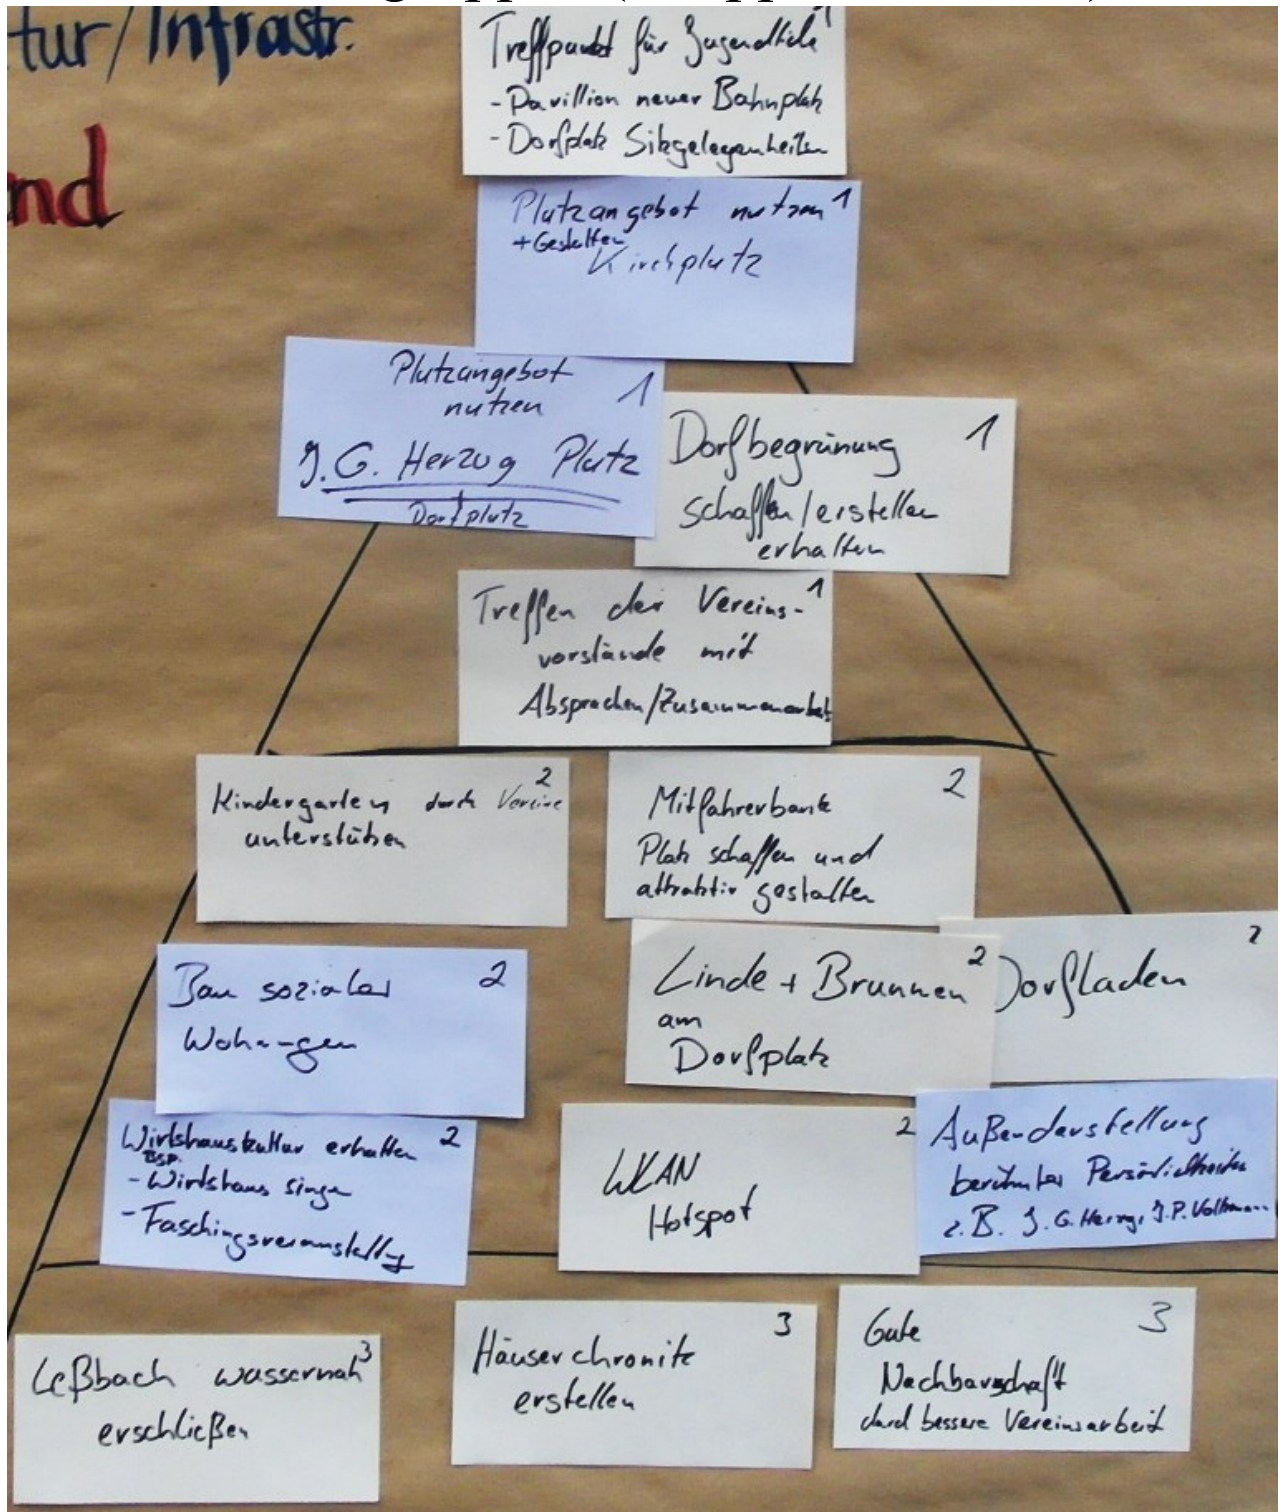 tur/Infrastr.
nd
Treffpunkt für Jugendliche 1
- Pavillion neuer Bahnplatz
- Dorfplatz Sitzgelegenheiten
Platzangebot nutzen 1
+ Gestalten
Kirchplatz
Platzangebot
nutzen 1
J. G. Herzog Platz
Dorfplatz
Dorfbegrünung 1
schaffen/erstellen
erhalten
Treffen der Vereins- 1
vorstände mit
Absprachen/Zusammenarbeit
Kindergarten durch Vereine 2
unterstützen
Mitfahrerbank 2
Platz schaffen und
attraktiv gestalten
Bau sozialer 2
Wohnungen
Linde + Brunnen 2
am
Dorfplatz
Dorfladen 2
Wirtshauskultur erhalten 2
Bsp.
- Wirtshaus singen
- Faschingsveranstaltung
WLAN 2
Hotspot
Außendarstellung
berühmter Persönlichkeiten
z.B. J. G. Herzog, J.P. Voltmann
Leßbach wassernah 3
erschließen
Häuserchronik 3
erstellen
Gute 3
Nachbarschaft
durch bessere Vereinsarbeit